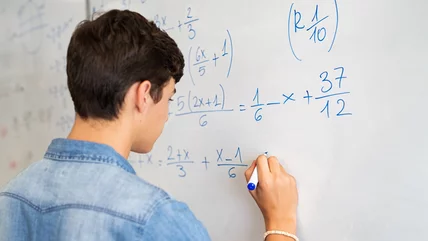 (R 1/10)
+ 2/3
(6x/5 + 1)
5(2x+1)/6 = 1/6 - x + 37/12
+ x = 2+x/3 + x-1/6 -